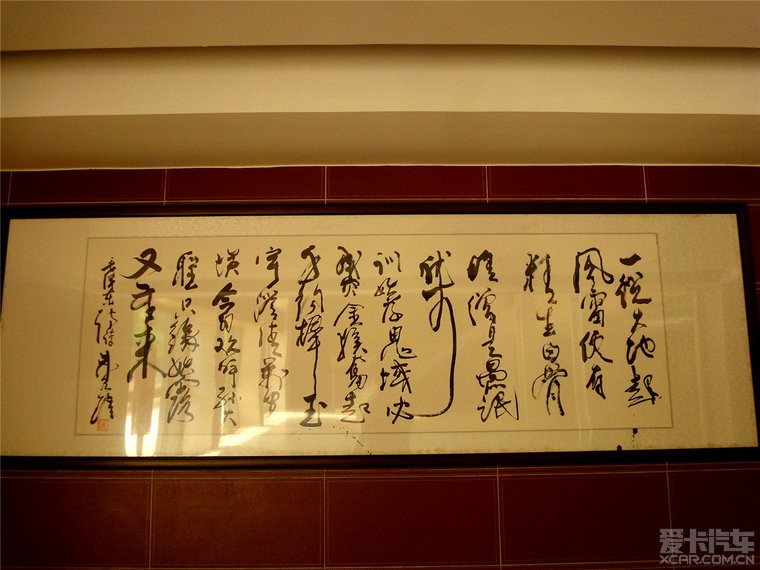 一從大地起
风雷便有
精生白骨
堆僧是愚氓
犹可
训妖为鬼蜮必
成灾金猴奋起
千钧棒玉
宇澄清万里
埃今日欢呼孙大
圣只缘妖雾
又重来
泽东
爱卡汽车
XCAR.COM.CN